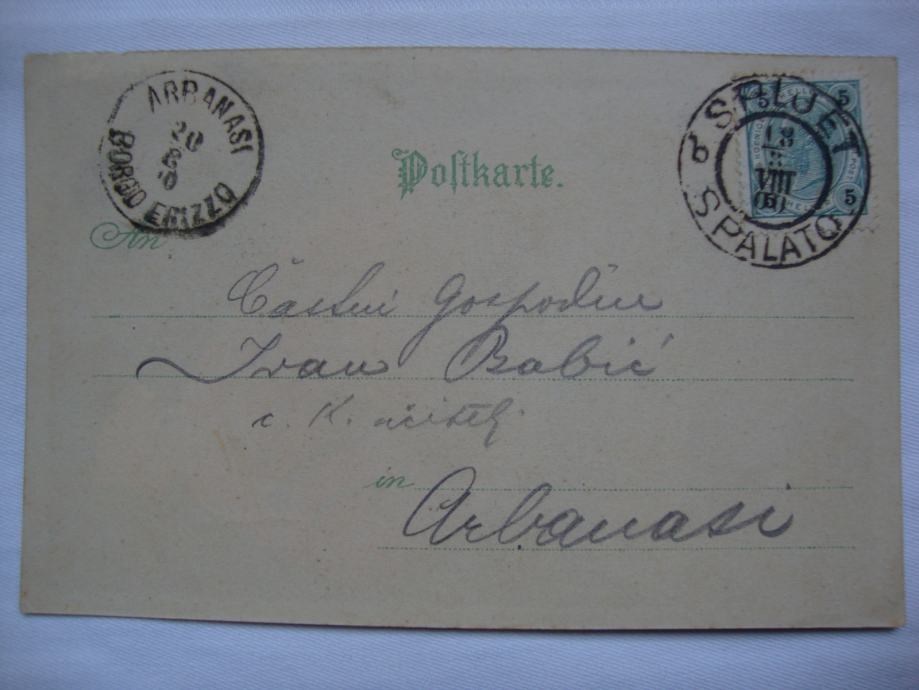 ARBANASI
20
8
BORGO ERIZZO
SPLJET
18
VIII
SPALATO
5
5
5
Postkarte.
An
Častni Gospodin
Ivan Babić
c. K. učitelj
in
Arbanasi